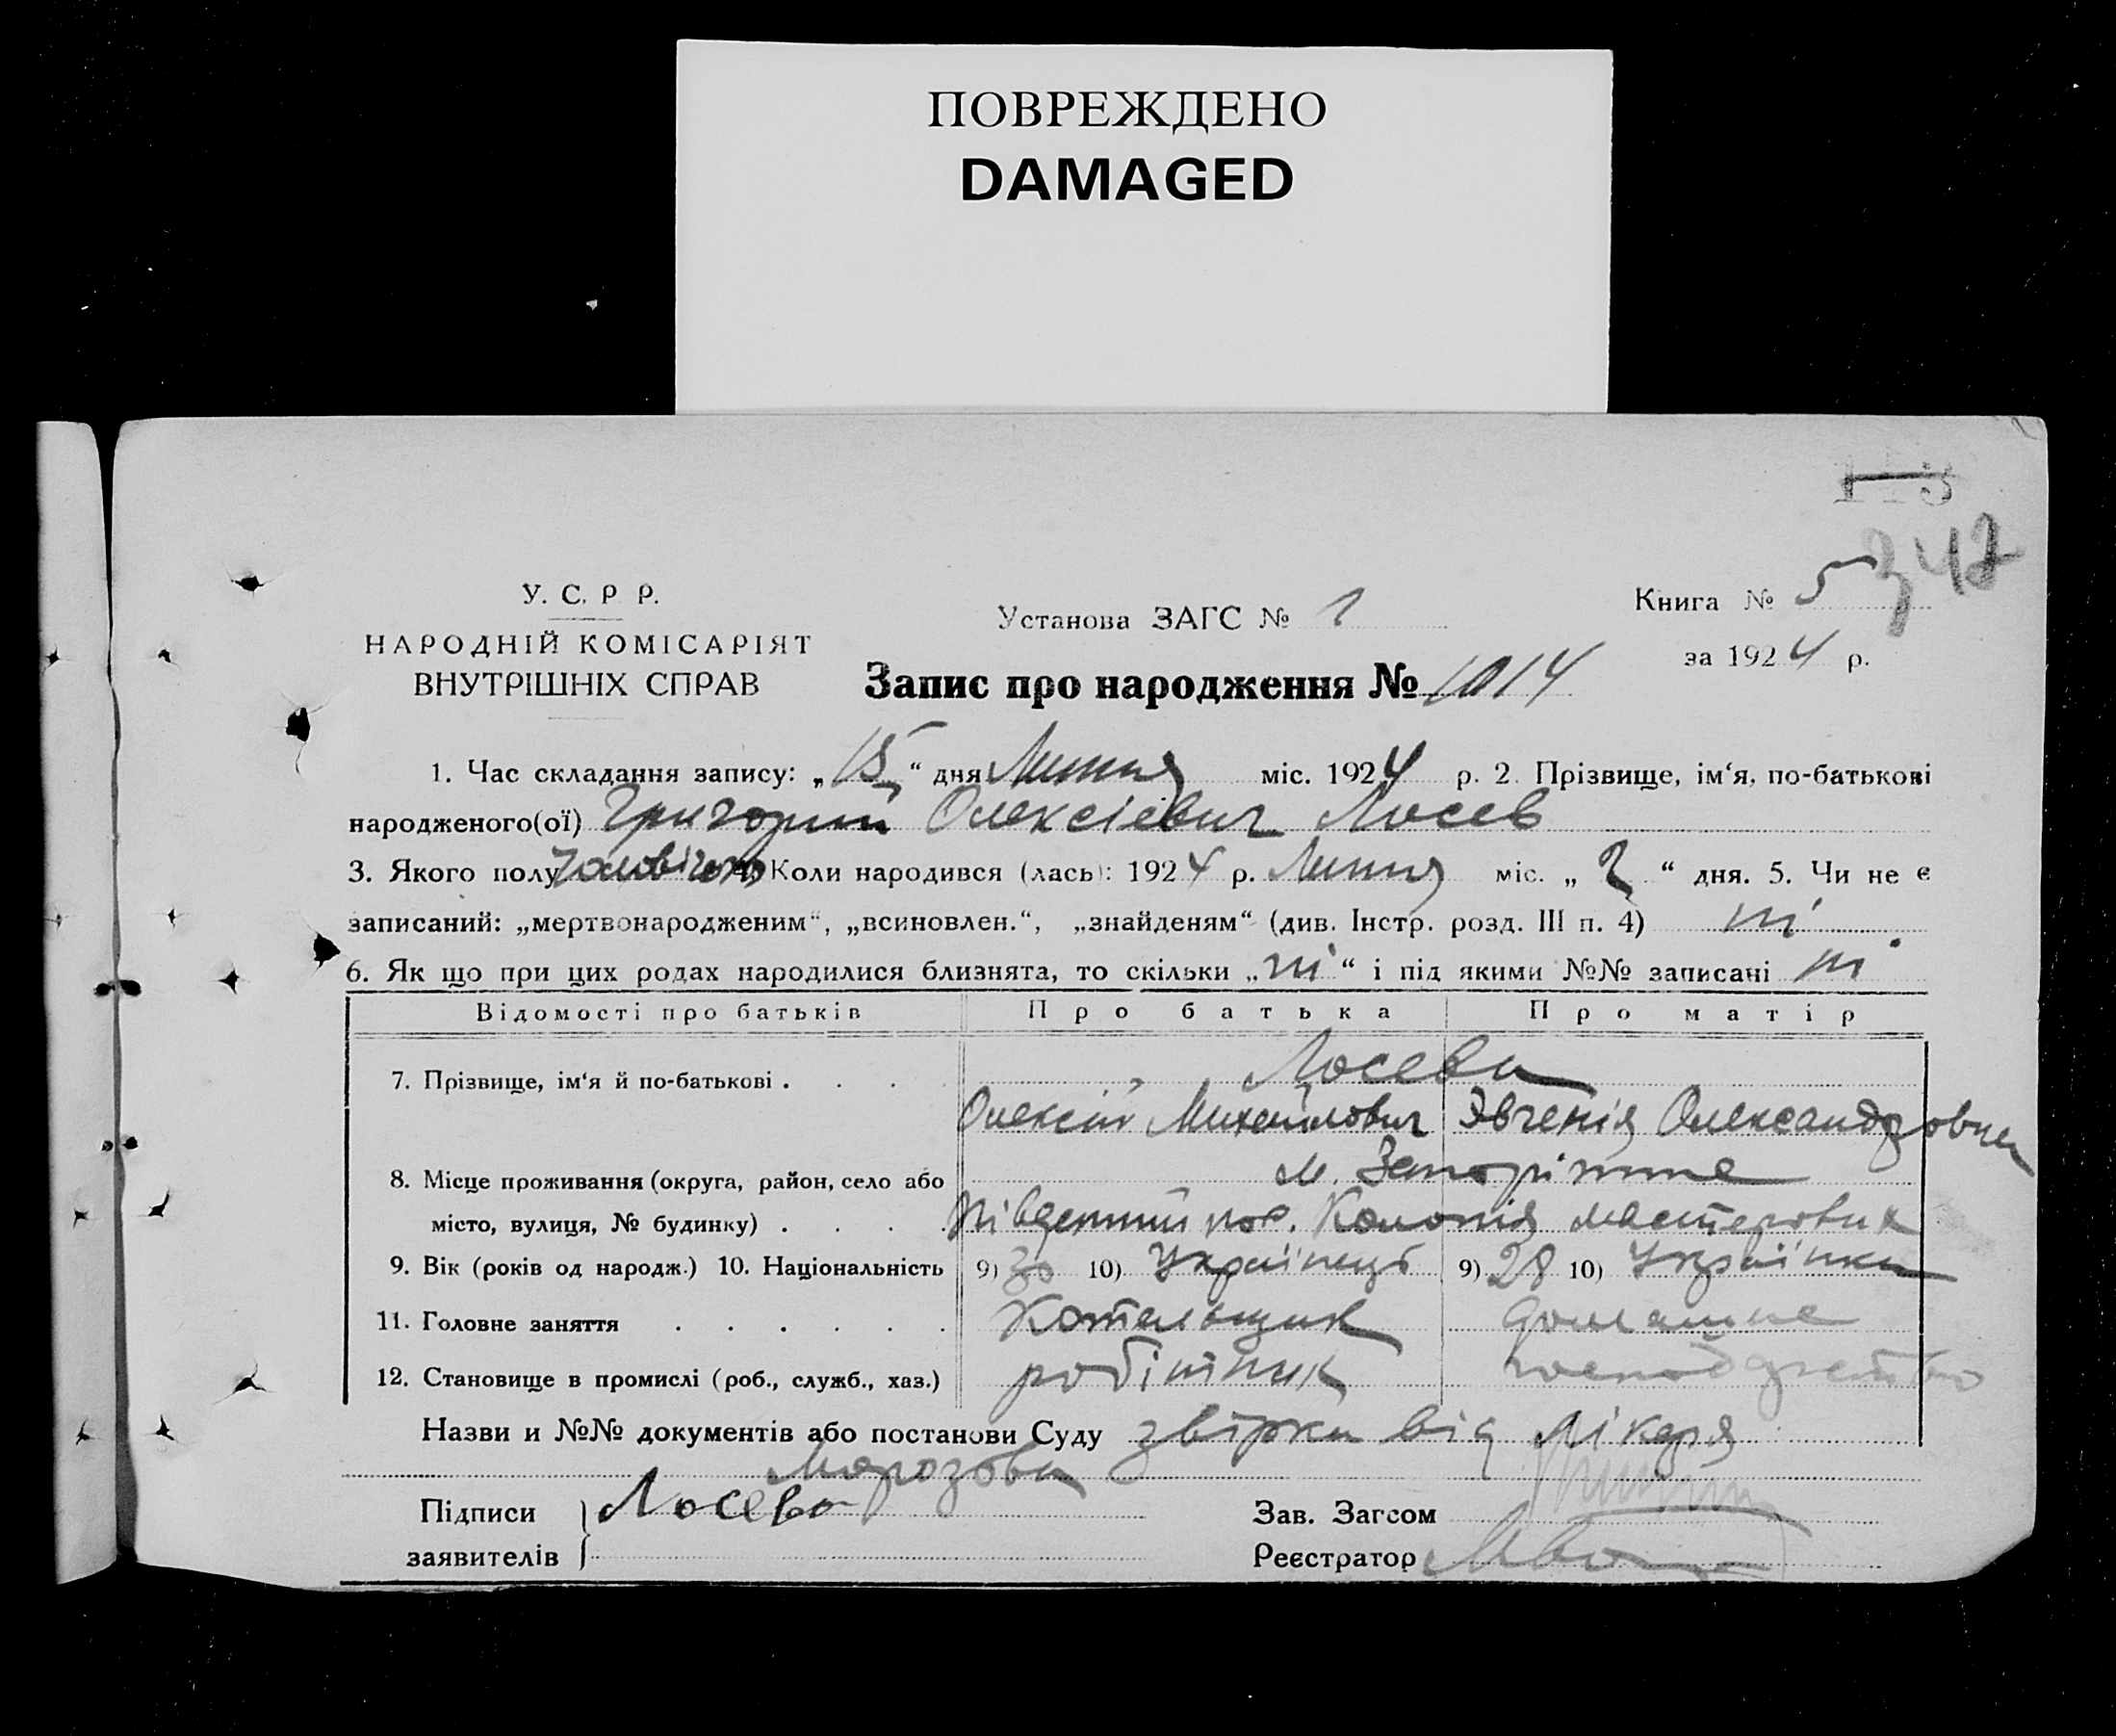 ПОВРЕЖДЕНО
DAMAGED
347
У. С. Р Р.
НАРОДНІЙ КОМІСАРІЯТ
ВНУТРІШНІХ СПРАВ
Установа ЗАГС № 1
Книга № 5
за 1924 р.
Запис про народження № 1014
1. Час складання запису: „15“ дня Липня міс. 1924 р. 2. Прізвище, ім‘я, по-батькові
народженого(ої) Григорій Олексієвич Лосев
3. Якого полу чоловічого 4. Коли народився (лась): 1924 р. Липня міс. „2“ дня. 5. Чи не є
записаний: „мертвонародженим“, „всиновлен.“, „знайденям“ (див. Інстр. розд. III п. 4) ні
6. Як що при цих родах народилися близнята, то скільки „ні“ і під якими №№ записані ні
Відомості про батьків Про батька Про матір
7. Прізвище, ім‘я й по-батькові . . . Лосеви
Олексій Михайлович Эвгенія Олександровна
8. Місце проживання (округа, район, село або м. Запоріжже
місто, вулиця, № будинку) . . . . Південний пос. Колонія мастерових
9. Вік (років од народж.) 10. Національність 9) 30 10) Українець 9) 28 10) Українка
11. Головне заняття . . . . . . Котельщик домашне
12. Становище в промислі (роб., служб., хаз.) робітник господарство
Назви и №№ документів або постанови Суду звірка від лікаря
Морозова
Підписи Лосева Зав. Загсом
заявителів Реєстратор